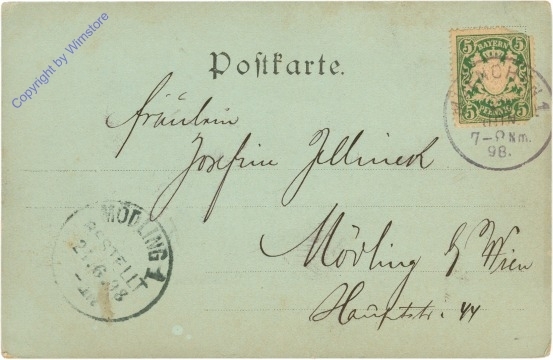 Copyright by Wimstore
Postkarte.
5 BAYERN 5
5 PFENNIG 5
MÜNCHEN 1
7-8 Nm.
98.
Fräulein
Josefine Jellineck
Mödling b/ Wien
Hauptstr. 44
MÖDLING 1
BESTELLT
21.6.98